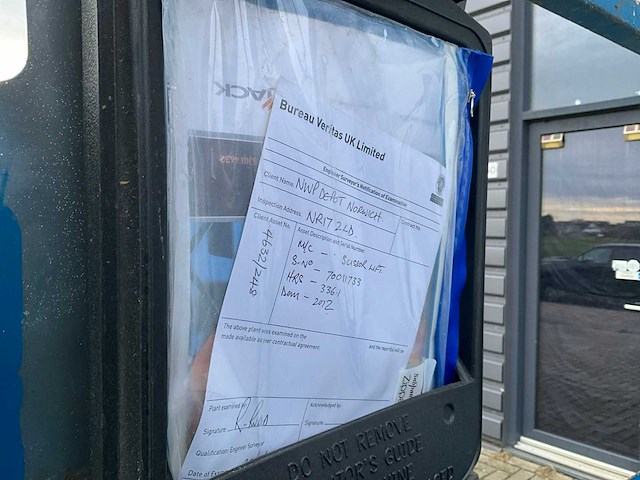 Bureau Veritas UK Limited
Engineer Surveyor's Notification of Examination
Client Name: NWP DEPOT NORWICH.
Contract No.
Inspection Address. NR17 2LD
Client Asset No. Asset Description and Serial Number.
4632/1248
M/C - SCISSOR LIFT
S.NO - 70011733
HRS - 336.1
DOM - 2012
The above plant was examined on the
and the report(s) will be
made available as per contractual agreement.
Plant examined
Acknowledged by:
Signature
Signature.
Qualification Engineer Surveyor
Date of
DO NOT REMOVE
OPERATOR'S GUIDE